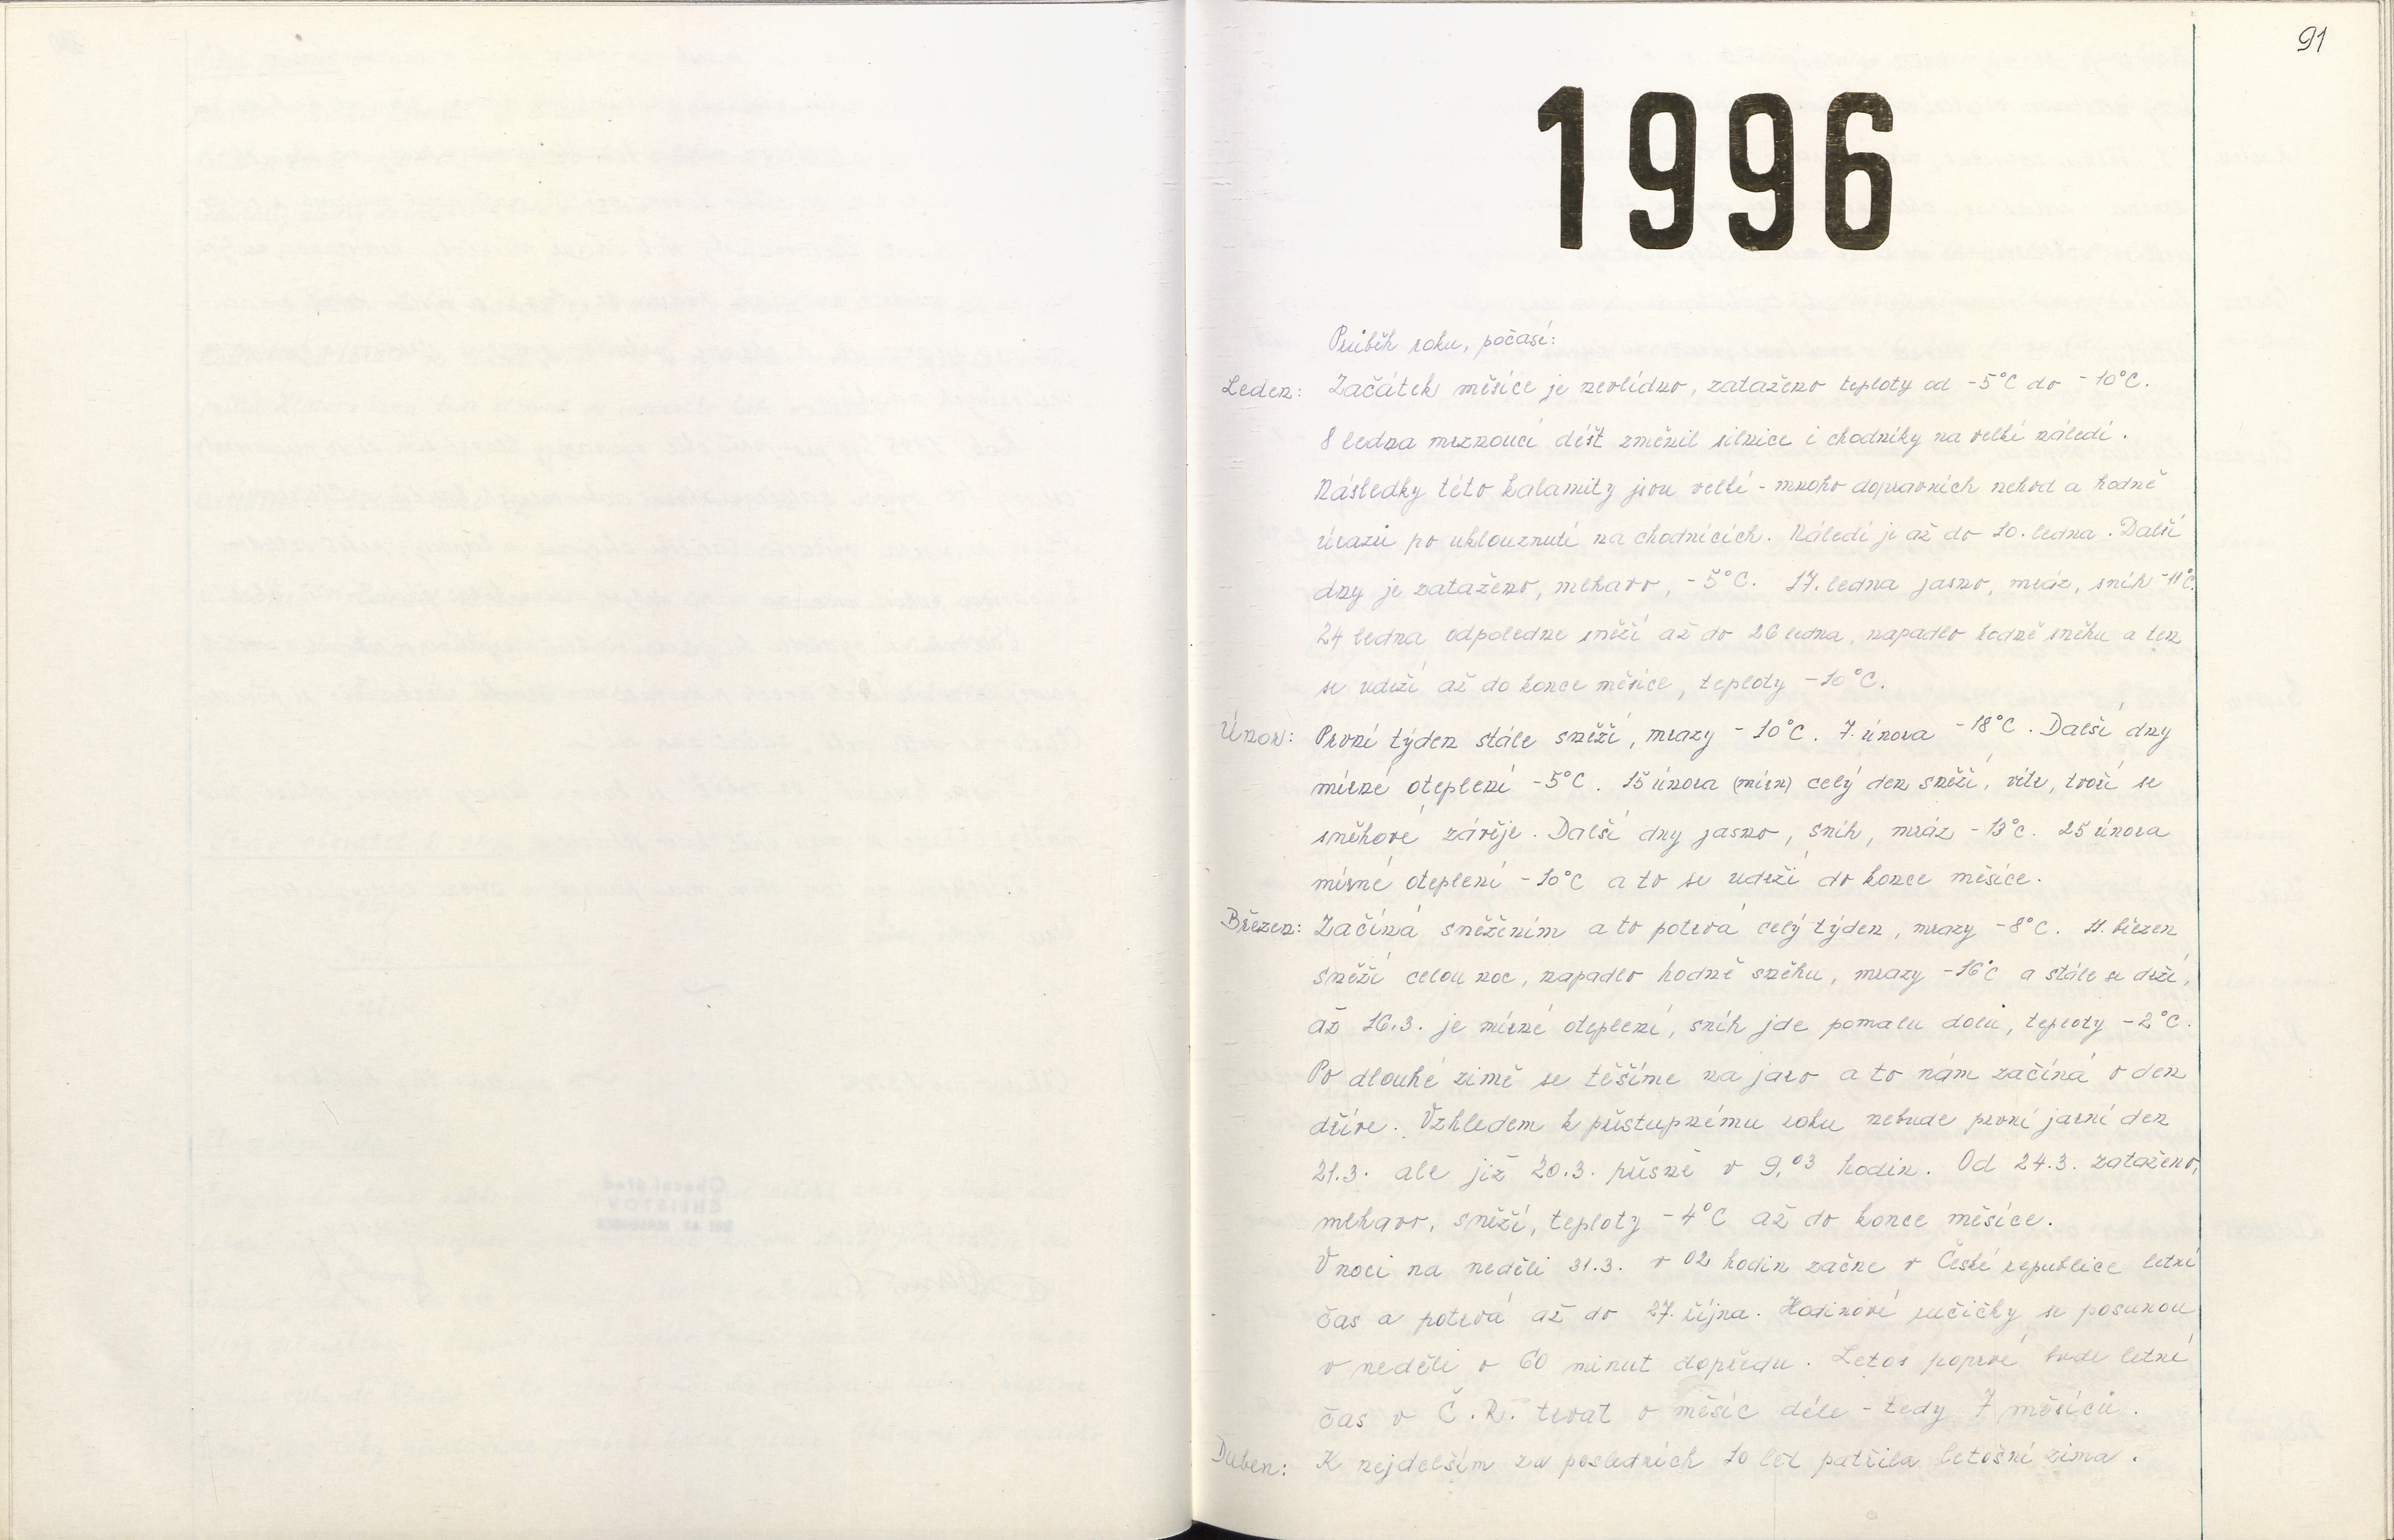 91
1996
Průběh roku, počasí:
Leden: Začátek měsíce je nevlídno, zataženo teploty od -5°C do -10°C.
8 ledna mrznoucí déšť změnil silnice i chodníky na velké náledí.
Následky této kalamity jsou velké - mnoho dopravních nehod a hodně
úrazů po uklouznutí na chodnících. Náledí je až do 10. ledna. Další
dny je zataženo, mlhavo, -5°C. 17. ledna jasno, mráz, sníh -11°C.
24 ledna odpoledne sněží až do 26 ledna, napadlo hodně sněhu a ten
se udrží až do konce měsíce, teploty -10°C.
Únor: První týden stále sněží, mrazy -10°C. 7. února -18°C. Další dny
mírné oteplení -5°C. 15 února celý den sněží, vítr, tvoří se
sněhové závěje. Další dny jasno, sníh, mráz -13°C. 25 února
mírné oteplení -10°C a to se udrží do konce měsíce.
Březen: Začíná sněžením a to potrvá celý týden, mrazy -8°C. 11. březen
sněží celou noc, napadlo hodně sněhu, mrazy -16°C a stále se drží,
až 16.3. je mírné oteplení, sníh jde pomalu dolů, teploty -2°C.
Po dlouhé zimě se těšíme na jaro a to nám začíná o den
dříve. Vzhledem k přestupnému roku nebude první jarní den
21.3. ale již 20.3. přesně v 9,03 hodin. Od 24.3. zataženo,
mlhavo, sněží, teploty -4°C až do konce měsíce.
V noci na neděli 31.3. v 02 hodin začne v České republice letní
čas a potrvá až do 27. října. Hodinové ručičky se posunou
v neděli o 60 minut dopředu. Letos poprvé bude letní
čas v Č.R. trvat o měsíc déle - tedy 7 měsíců.
Duben: K nejdelším za posledních 10 let patřila letošní zima.